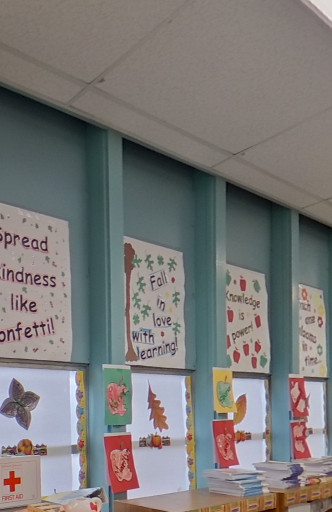 Spread
kindness
like
confetti!
Fall
in
love
with
learning!
Knowledge
is
power!
time.
FIRST AID